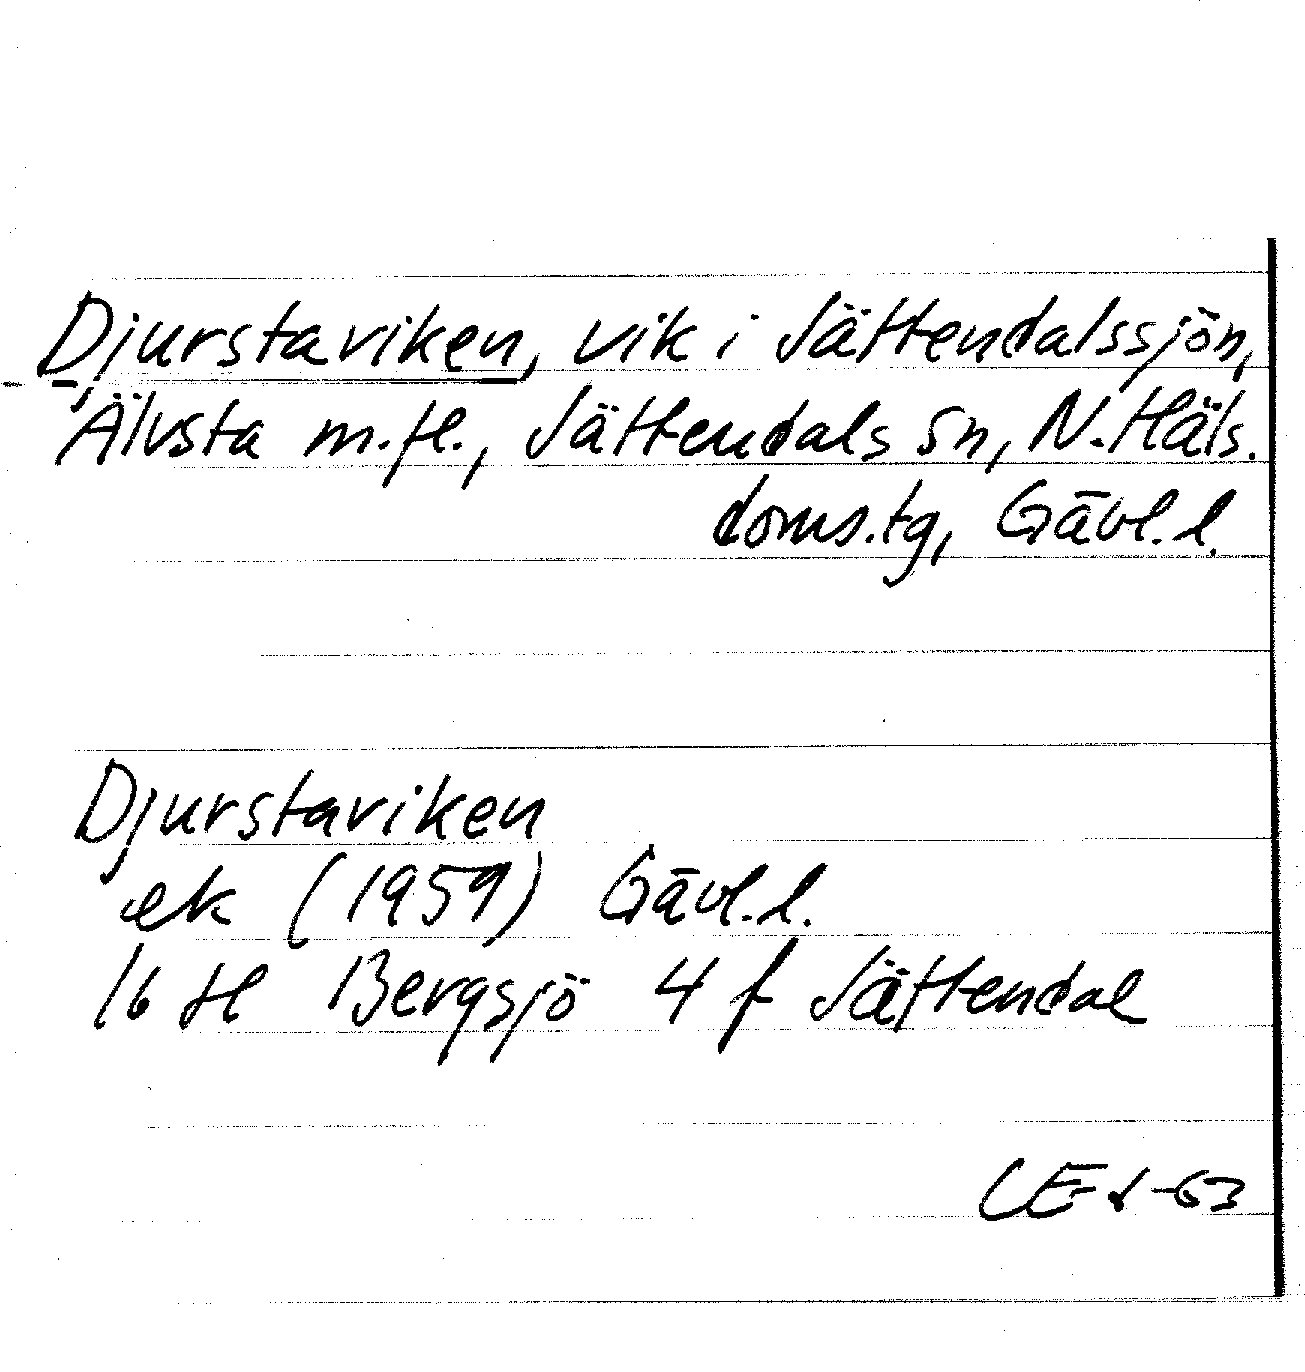 Djurstaviken, vik i Jättendalssjön,
Älvsta m.fl., Jättendals sn, N. Häls.
doms.tg, Gävl.l.
Djurstaviken
ek (1959) Gävl.l.
16 H Bergsjö 4 f Jättendal
-63